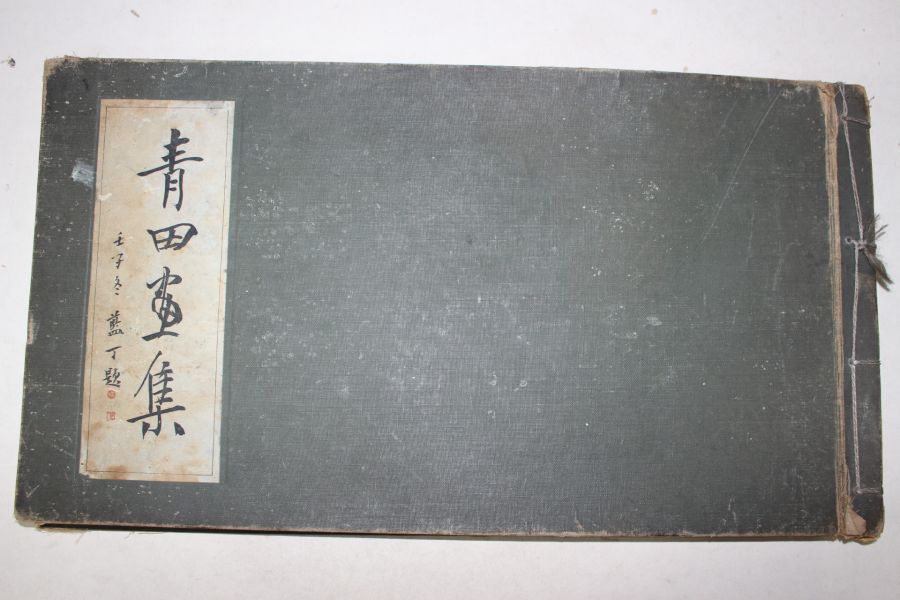 青田画集
壬子冬 藍丁題